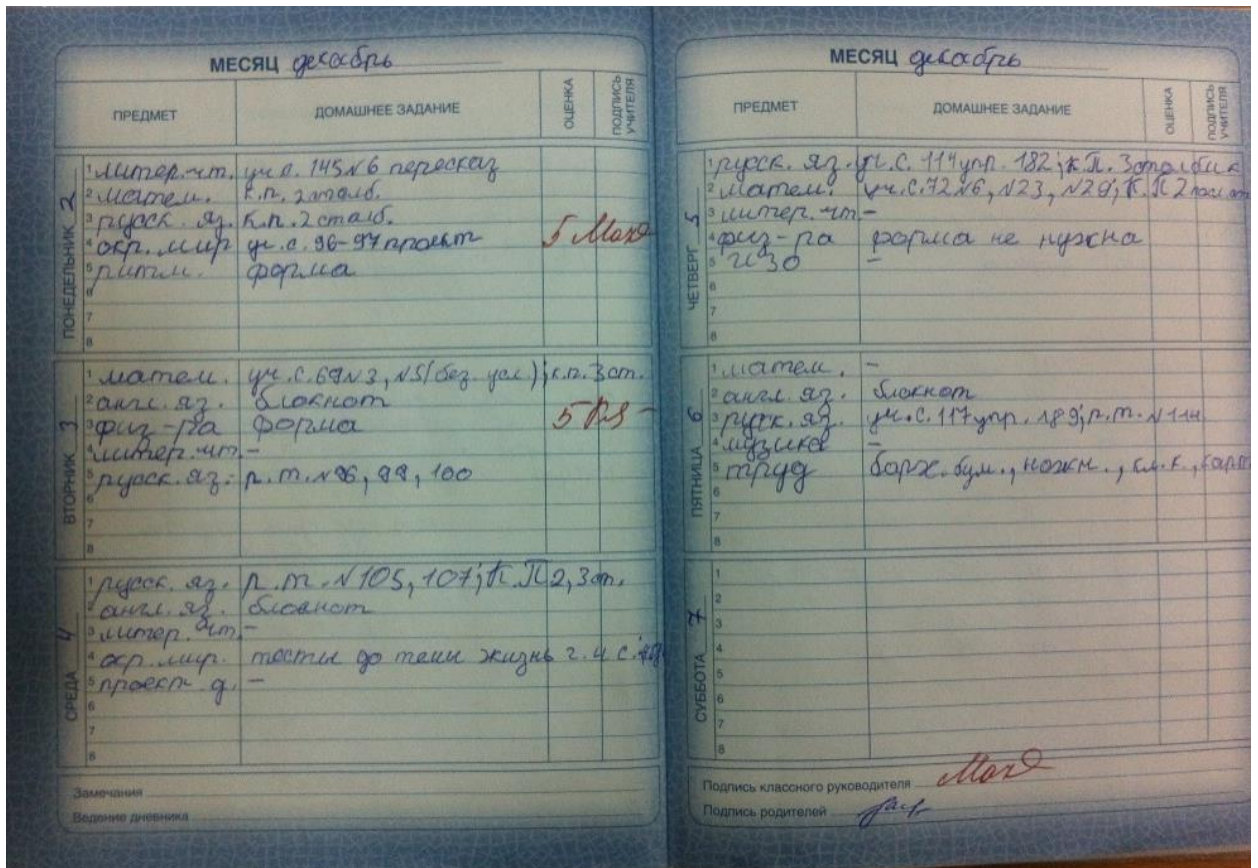 МЕСЯЦ декабрь
ПРЕДМЕТ ДОМАШНЕЕ ЗАДАНИЕ ОЦЕНКА ПОДПИСЬ УЧИТЕЛЯ
ПОНЕДЕЛЬНИК 2
1 литер. чт. уч. с. 145 №6 пересказ
2 матем. к.п. 2 столб.
3 русск. яз. к.п. 2 столб.
4 окр. мир уч. с. 96-97 проект 5
5 ритм. форма
6
7
8
ВТОРНИК 3
1 матем. уч. с. 69 №3, №5 (без усл.); к.п. 3 ст.
2 англ. яз. блокнот
3 физ-ра форма 5
4 литер. чт. -
5 русск. яз. р.т. №96, 99, 100
6
7
8
СРЕДА 4
1 русск. яз. р.т. №105, 107; К.П 2, 3 ст.
2 англ. яз. блокнот
3 литер. чт. -
4 окр. мир. тесты до темы жизнь г. и с.
5 проект. д. -
6
7
8
Замечания
Ведение дневника
МЕСЯЦ декабрь
ПРЕДМЕТ ДОМАШНЕЕ ЗАДАНИЕ ОЦЕНКА ПОДПИСЬ УЧИТЕЛЯ
ЧЕТВЕРГ 5
1 русск. яз. уч. с. 114 упр. 182; к.П. 3 столбик
2 матем. уч. с. 72 №6, №23, №29; К.П 2
3 литер. чт -
4 физ-ра форма не нужна
5 ИЗО -
6
7
8
ПЯТНИЦА 6
1 матем. -
2 англ. яз. блокнот
3 русск. яз. уч. с. 117 упр. 189; р.т. №114
4 музыка -
5 труд барх. бум., ножн., кл. к., карт
6
7
8
СУББОТА 7
1
2
3
4
5
6
7
8
Подпись классного руководителя
Подпись родителей